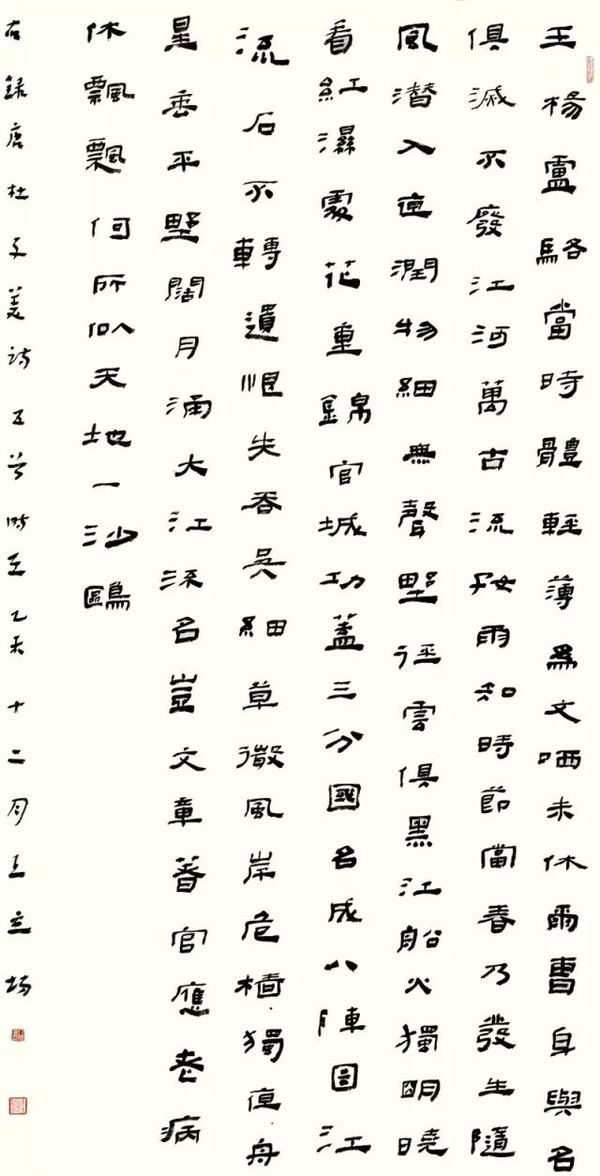 王楊盧駱當時體輕薄爲文哂未休爾曹身與名
俱滅不廢江河萬古流好雨知時節當春乃發生隨
風潛入夜潤物細無聲野徑雲俱黑江船火獨明曉
看紅濕處花重錦官城功蓋三分國名成八陣圖江
流石不轉遺恨失吞吳細草微風岸危檣獨夜舟
星垂平野闊月涌大江流名豈文章著官應老病
休飄飄何所似天地一沙鷗
右錄唐杜子美詩五首時在乙十二月